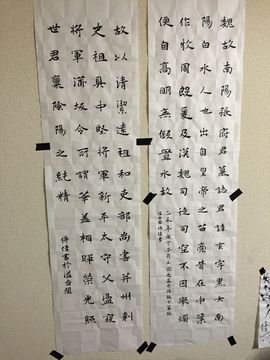 魏故南陽張府君墓誌君諱玄字黑女南
陽白水人也出自皇帝之苗裔昔在中葉
作牧周殷爰及漢魏司徒司空不因舉燭
便自高明無假置水故
乙未年
故以清潔遠祖和吏部尚書并州刺
史祖具中堅將軍新平太守父盪寇
將軍蒲坂令所謂華蓋相暉榮光照
世君稟陰陽之純精
傅偉書於溢香閣